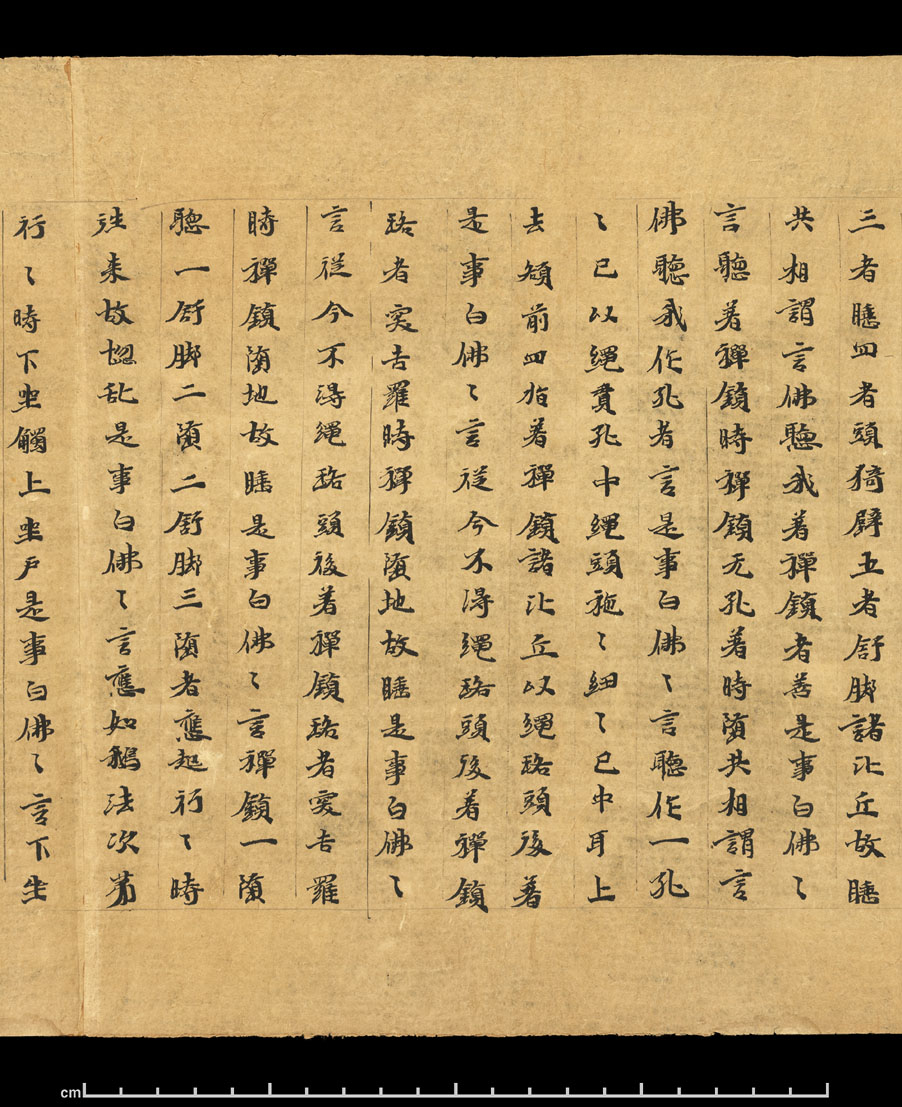 三者睡四者頭猗壁五者舒脚諸比丘故睡
共相謂言佛聽我著禪鎮者善是事白佛〻
言聽著禪鎮時禪鎮无孔著時墮共相謂言
佛聽我作孔者言是事白佛〻言聽作一孔
〻已以繩貫孔中繩頭施〻細〻已中耳上
去頞前四指著禪鎮諸比丘以繩珞頭後著
是事白佛〻言從今不得繩珞頭後著禪鎮
珞者突吉羅時禪鎮墮地故睡是事白佛〻
言從今不得繩珞頭後著禪鎮珞者突吉羅
時禪鎮墮地故睡是事白佛〻言禪鎮一墮
聽一舒脚二墮二舒脚三墮者應起行〻時
往来故惚乱是事白佛〻言應如鵝法次苐
行〻時下坐觸上坐戶是事白佛〻言下坐
cm